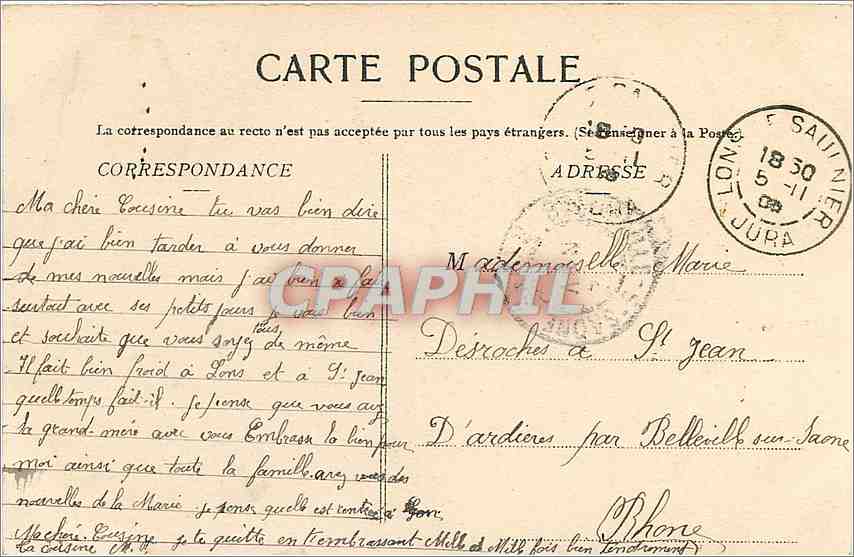 CARTE POSTALE
La correspondance au recto n'est pas acceptée par tous les pays étrangers. (Se renseigner à la Poste).
CORRESPONDANCE
Ma chère Cousine tu vas bien dire
que j'ai bien tarder à vous donner
de mes nouvelles mais j'ai bien à fair
surtout avec ses petits jours je vais bien
et souhaite que vous soyez tous de même
Il fait bien froid à Lons et à St Jean
quelle temps fait-il. Je pense que vous avez
la grand-mère avec vous Embrasse la bien pour
moi ainsi que toute la famille. avez vous des
nouvelles de la Marie je pense quelle est rentrée à Lyon
Ma chère Cousine je te quitte en t'embrassant Mille et Mille fois bien tendrement
ta Cousine M.
ADRESSE
Mademoiselle Marie
Desroches à St Jean
D'ardières par Belleville-sur-Saone
Rhone
LONS-LE-SAUNIER
18 30
5 -11
JURA
18 30
5 -11
JURA
CPAPHIL